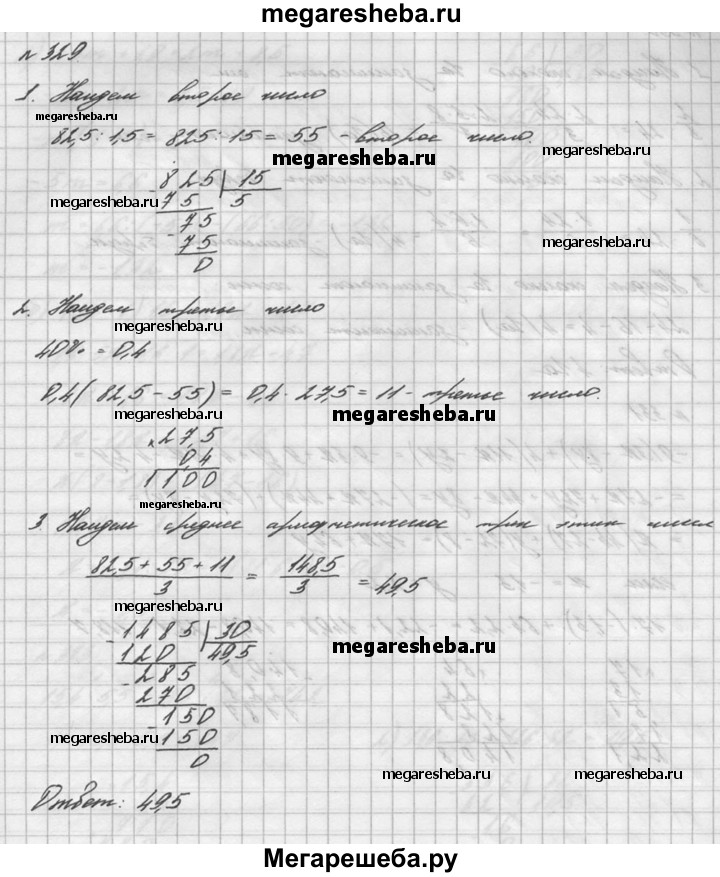 megaresheba.ru
№ 329
1. Найдем второе число
megaresheba.ru
82,5 : 1,5 = 825 : 15 = 55 - второе число.
megaresheba.ru
megaresheba.ru
- 825 | 15
megaresheba.ru
75 5
- 75
megaresheba.ru
75
0
2. Найдем третье число
megaresheba.ru
40% = 0,4
0,4 ( 82,5 - 55 ) = 0,4 · 27,5 = 11 - третье число.
megaresheba.ru
megaresheba.ru
× 27,5
0,4
11,00
megaresheba.ru
3. Найдем среднее арифметическое трех этих чисел
82,5 + 55 + 11 / 3 = 148,5 / 3 = 49,5
megaresheba.ru
- 1485 | 30
megaresheba.ru
120 49,5
- 285
270
- 150
megaresheba.ru
150
0
megaresheba.ru
megaresheba.ru
Ответ: 49,5
Мегарешеба.ру